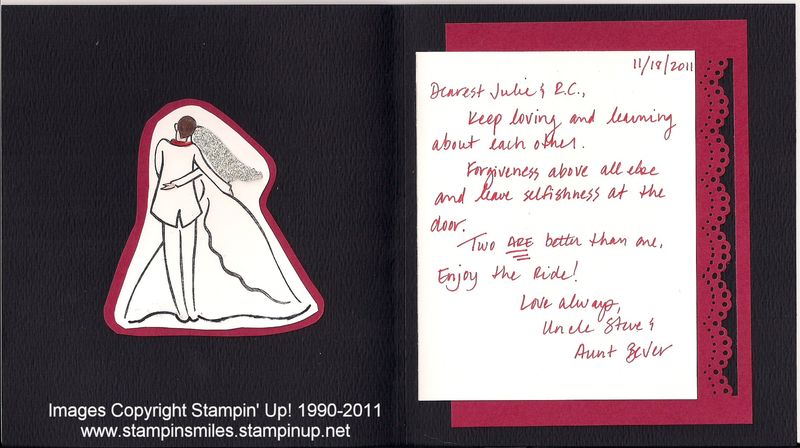 11/18/2011
Dearest Julie & R.C.,
Keep loving and learning
about each other.
Forgiveness above all else
and leave selfishness at the
door.
Two ARE better than one,
Enjoy the Ride!
Love always,
Uncle Steve &
Aunt BeVer
Images Copyright Stampin' Up! 1990-2011
www.stampinsmiles.stampinup.net